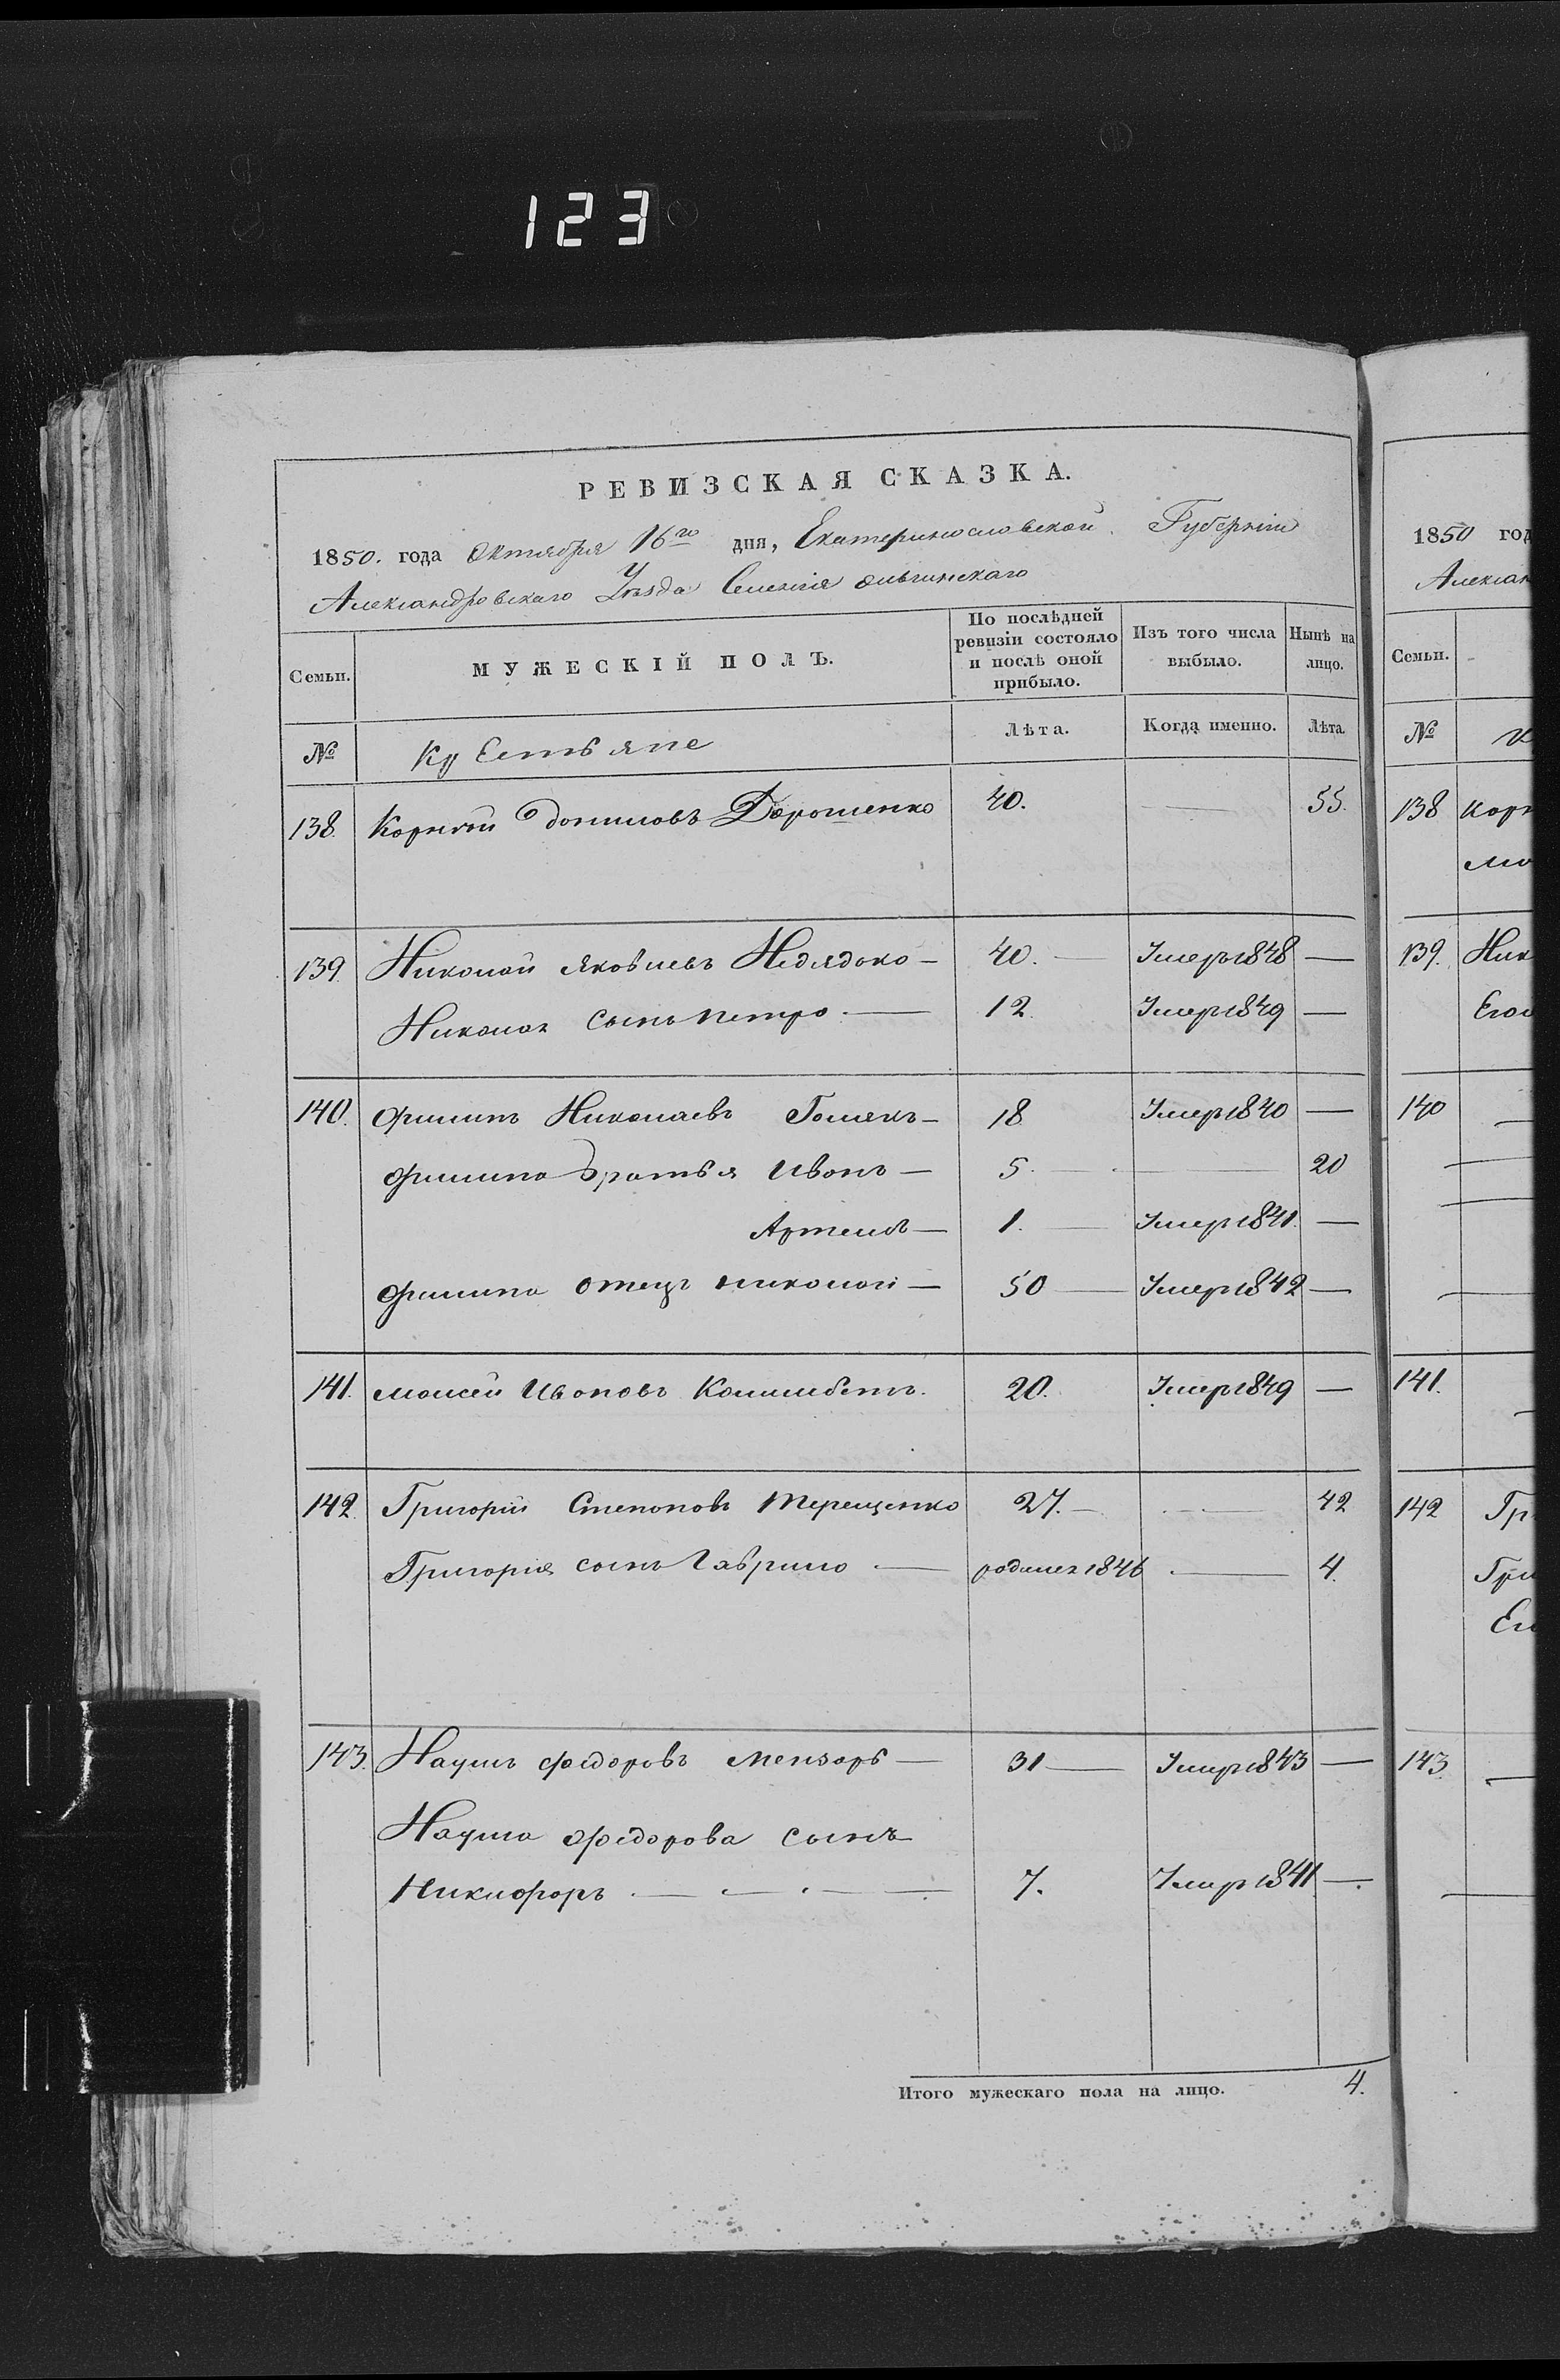 123
РЕВИЗСКАЯ СКАЗКА.
1850. года Октября 16го дня, Екатеринославской Губернии
Александровскаго Уезда Селения Ольгинскаго
Семьи.
МУЖЕСКІЙ ПОЛЪ.
По послѣдней ревизіи состояло и послѣ оной прибыло.
Изъ того числа выбыло.
Нынѣ на лицо.
№
Крестьяне
Лѣта.
Когда именно.
Лѣта.
138. Корний Данилов Дорошенко 40. — 55.
139. Николай Яковлевъ 40. — Умеръ 1848 —
Николая сынъ Петро — 12 Умеръ 1849 —
140. Филипъ Николаевъ Голякъ — 18 Умеръ 1840 —
Филипа братья Иванъ — 5. — 20
Артемъ — 1. — Умеръ 1841. —
Филипа отецъ Николай — 50 — Умеръ 1842 —
141. Моисей Ивановъ 20. Умеръ 1849 —
142. Григорій Степановъ Терещенко 27. — — 42
Григорія сынъ Гаврило — родился 1846 — 4.
143. Наумъ Федоровъ — 31 — Умеръ 1843 —
Наума Федорова сынъ
Никифоръ — 7. Умеръ 1841 —
Итого мужескаго пола на лицо. 4.
1850 год
Алексан
Семьи.
№
138 Корн
139. Ник
Его
140
141.
142 Гр
Гри
Ег
143